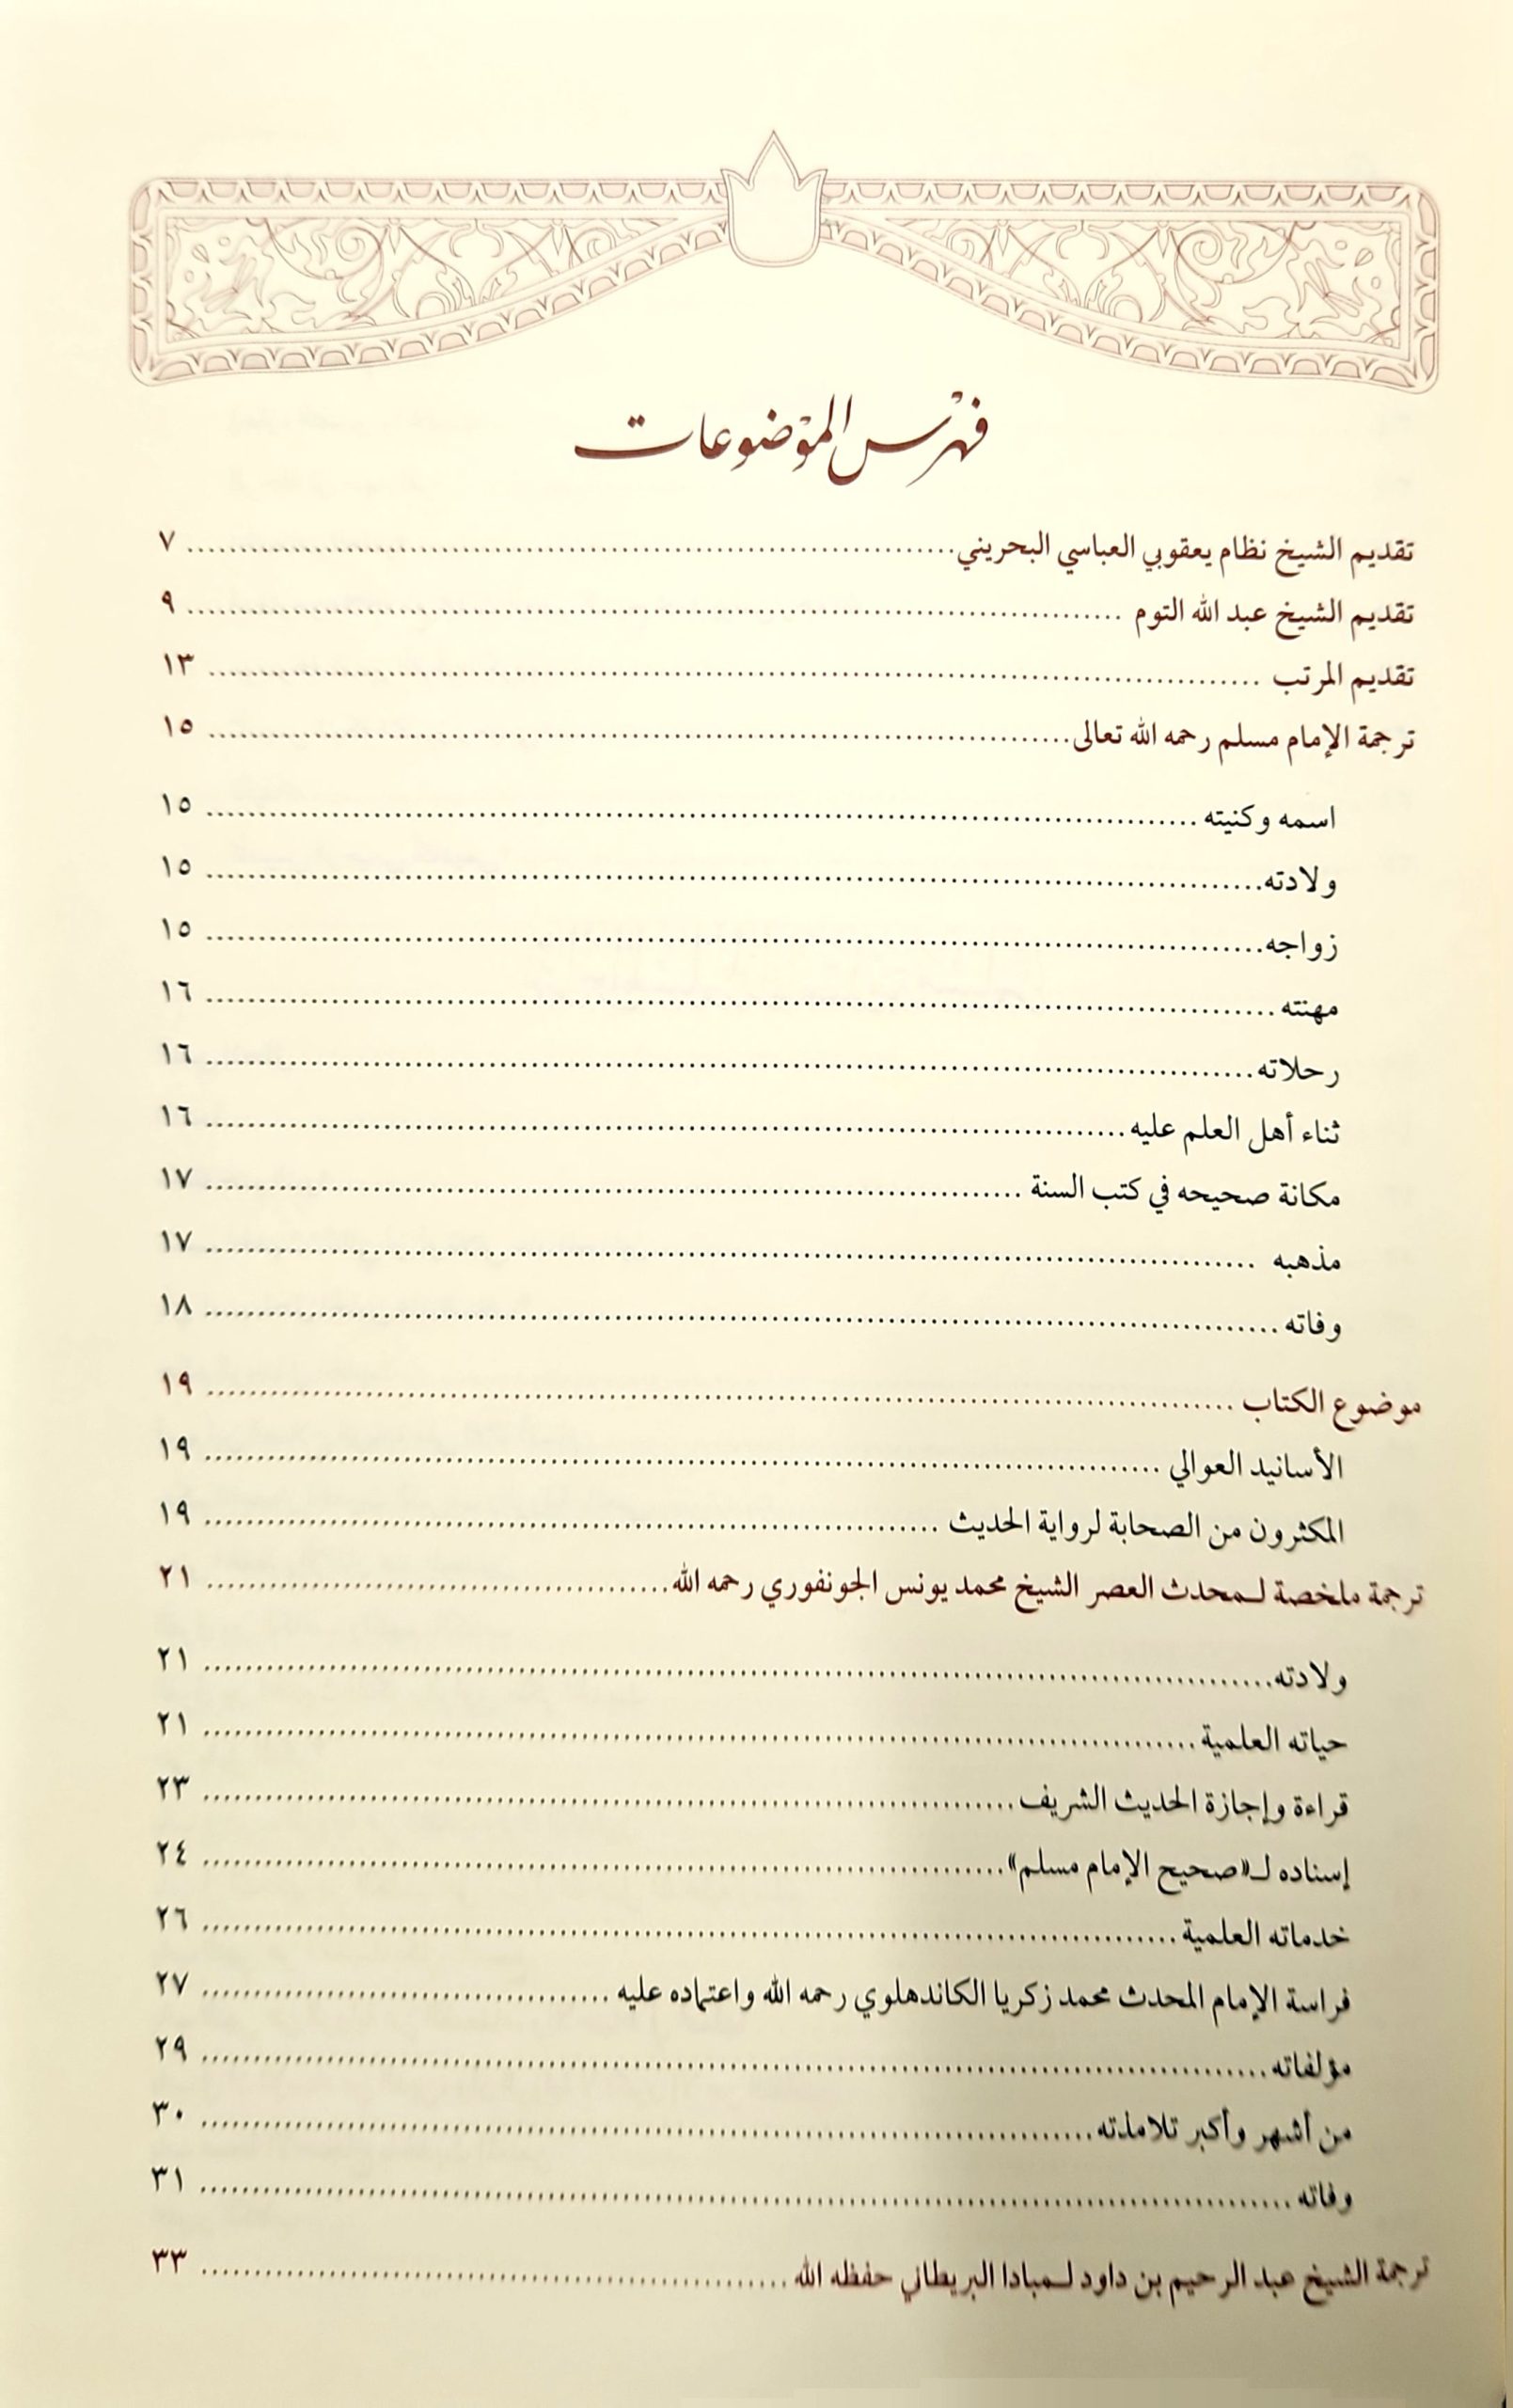 فهرس الموضوعات
تقديم الشيخ نظام يعقوبي العباسي البحريني ٧
تقديم الشيخ عبد الله التوم ٩
تقديم المرتب ١٣
ترجمة الإمام مسلم رحمه الله تعالى ١٥
اسمه وكنيته ١٥
ولادته ١٥
زواجه ١٥
مهنته ١٦
رحلاته ١٦
ثناء أهل العلم عليه ١٦
مكانة صحيحه في كتب السنة ١٧
مذهبه ١٧
وفاته ١٨
موضوع الكتاب ١٩
الأسانيد العوالي ١٩
المكثرون من الصحابة لرواية الحديث ١٩
ترجمة ملخصة لـمحدث العصر الشيخ محمد يونس الجونفوري رحمه الله ٢١
ولادته ٢١
حياته العلمية ٢١
قراءة وإجازة الحديث الشريف ٢٣
إسناده لـ«صحيح الإمام مسلم» ٢٤
خدماته العلمية ٢٦
فراسة الإمام المحدث محمد زكريا الكاندهلوي رحمه الله واعتماده عليه ٢٧
مؤلفاته ٢٩
من أشهر وأكبر تلامذته ٣٠
وفاته ٣١
ترجمة الشيخ عبد الرحيم بن داود لـمبادا البريطاني حفظه الله ٣٣